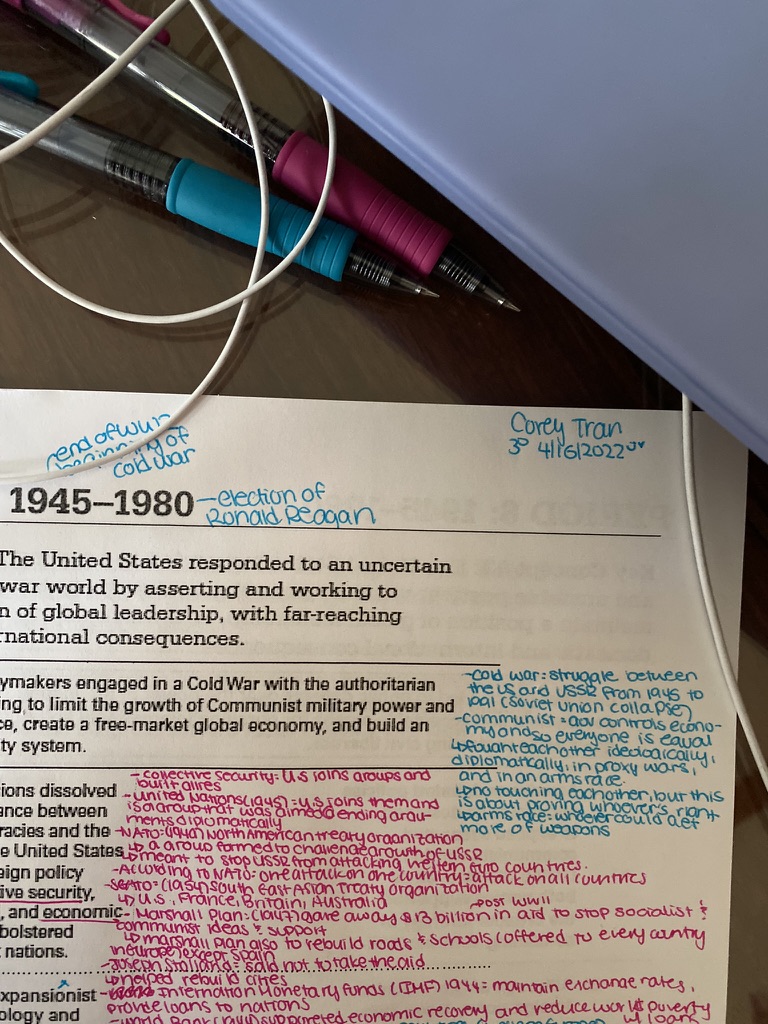 end of wwii
beginning of
cold war
Corey Tran
3° 4/16/2022
1945–1980
-election of
Ronald Reagan
The United States responded to an uncertain
war world by asserting and working to
n of global leadership, with far-reaching
rnational consequences.
ymakers engaged in a Cold War with the authoritarian
ing to limit the growth of Communist military power and
ce, create a free-market global economy, and build an
ty system.
-cold war: struggle between
the US and USSR from 1945 to
1991 (soviet union collapse)
-communist = gov controls econo-
my and so everyone is equal
↳fought each other ideologically,
diplomatically, in proxy wars,
and in an arms race.
↳no touching each other, but this
is about proving whoever's right
↳arms race: whoever could get
more of weapons
ions dissolved
ance between
racies and the
e United States
eign policy
ive security,
, and economic
bolstered
t nations.
xpansionist
ology and
-collective security: U.S joins groups and
built allies
-United Nations (1945): U.S joins them and
is a group that was aimed @ ending argu-
ments diplomatically
-NATO: (1949) North American treaty organization
↳a group formed to challenge growth of USSR
↳meant to stop USSR from attacking western euro countries.
-According to NATO: one attack on one country = attack on all countries
-SEATO: (1954) South East Asian Treaty organization
↳U.S, France, Britain, Australia
→post WWII
-Marshall Plan: (1947) gave away $13 billion in aid to stop socialist &
communist ideas & support
↳marshall plan also to rebuild roads & schools (offered to every country
in europe) except Spain
-Joseph Stalland = said not to take the aid
↳helped rebuild cities
International Monetary Funds (IMF) 1944 = maintain exchange rates,
provide loans to nations
-World Bank (1944) supported economic recovery and reduce world poverty
w/ loans